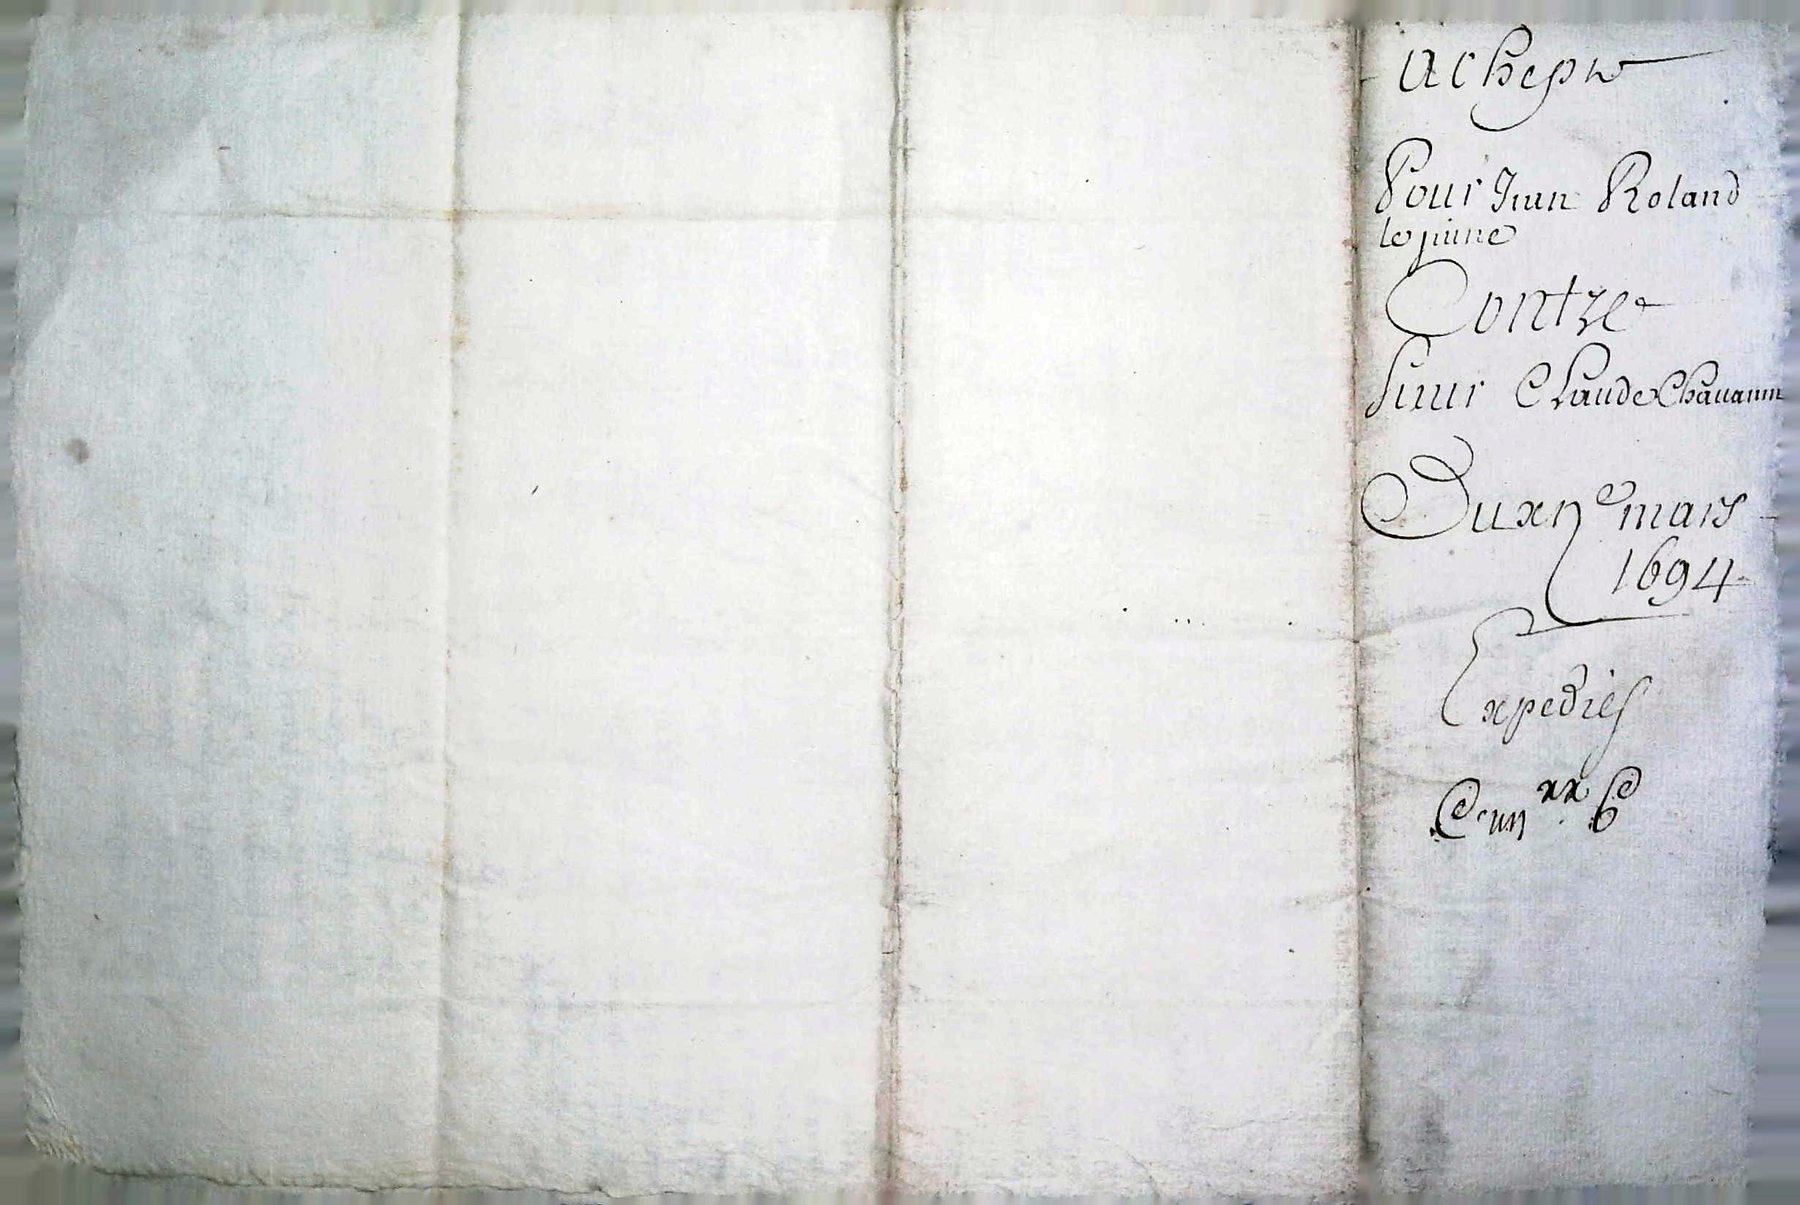 achept
Pour Jean Roland
le jeune
Contre
sieur Claude Chauanin
Du xij e mars
1694
Expedies